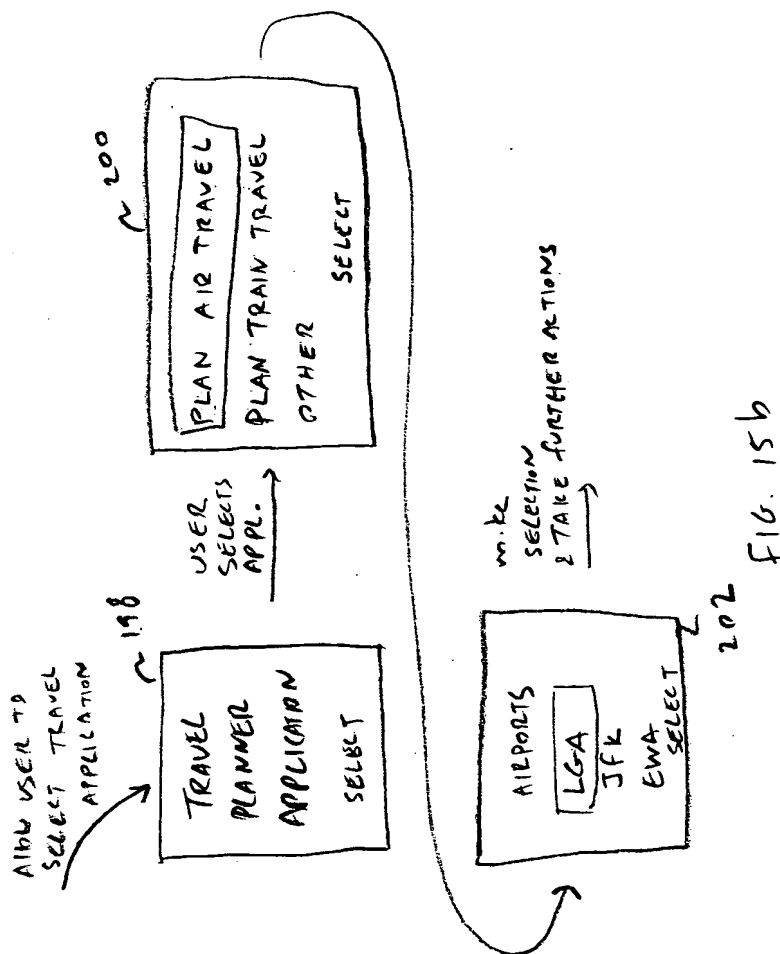 Allow USER TO
SELECT TRAVEL
APPLICATION
198
TRAVEL
PLANNER
APPLICATION
SELECT
USER
SELECTS
APPL.
200
PLAN AIR TRAVEL
PLAN TRAIN TRAVEL
OTHER
SELECT
AIRPORTS
LGA
JFK
EWA
SELECT
202
make
SELECTION
& TAKE FURTHER ACTIONS
FIG. 15b